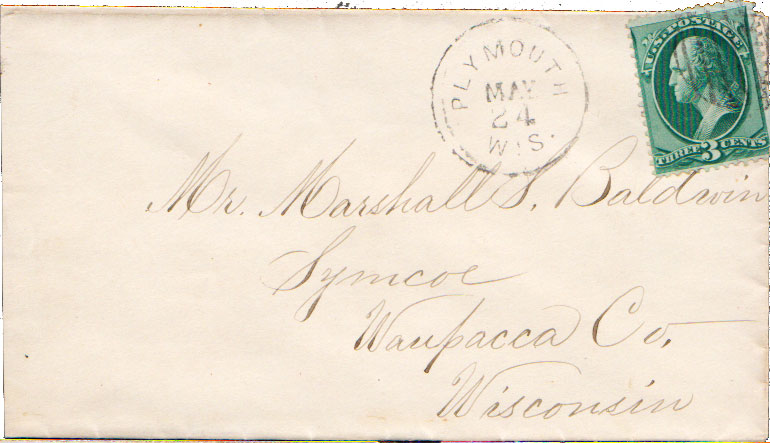 PLYMOUTH
MAY
24
WIS.
U.S. POSTAGE
THREE 3 CENTS
Mr. Marshall S. Baldwin
Symcoe
Waupacca Co.
Wisconsin